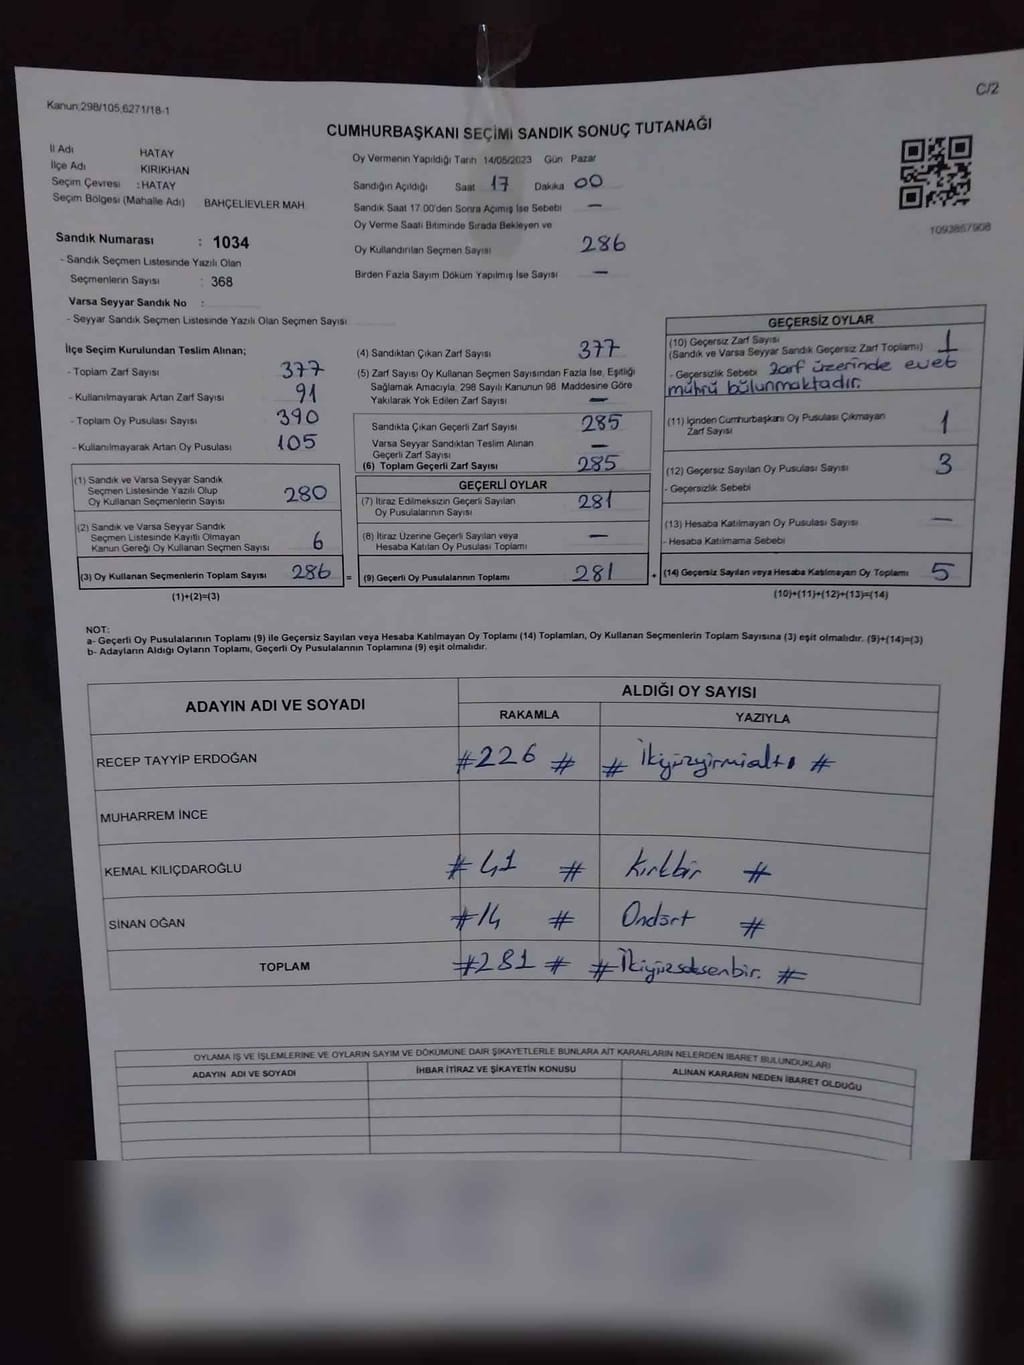 C/2
Kanun:298/105,6271/18-1
CUMHURBAŞKANI SEÇİMİ SANDIK SONUÇ TUTANAĞI
İl Adı HATAY
İlçe Adı KIRIKHAN
Seçim Çevresi :HATAY
Seçim Bölgesi (Mahalle Adı) BAHÇELİEVLER MAH
Sandık Numarası : 1034
- Sandık Seçmen Listesinde Yazılı Olan
Seçmenlerin Sayısı : 368
Varsa Seyyar Sandık No :
- Seyyar Sandık Seçmen Listesinde Yazılı Olan Seçmen Sayısı
Oy Vermenin Yapıldığı Tarih 14/05/2023 Gün Pazar
Sandığın Açıldığı Saat 17 Dakika 00
Sandık Saat 17.00'den Sonra Açımış İse Sebebi —
Oy Verme Saati Bitiminde Sırada Bekleyen ve
Oy Kullandırılan Seçmen Sayısı 286
Birden Fazla Sayım Döküm Yapılmış İse Sayısı —
1093857908
İlçe Seçim Kurulundan Teslim Alınan;
- Toplam Zarf Sayısı 377
- Kullanılmayarak Artan Zarf Sayısı 91
- Toplam Oy Pusulası Sayısı 390
- Kullanılmayarak Artan Oy Pusulası 105
(1) Sandık ve Varsa Seyyar Sandık
Seçmen Listesinde Yazılı Olup
Oy Kullanan Seçmenlerin Sayısı 280
(2) Sandık ve Varsa Seyyar Sandık
Seçmen Listesinde Kayıtlı Olmayan
Kanun Gereği Oy Kullanan Seçmen Sayısı 6
(3) Oy Kullanan Seçmenlerin Toplam Sayısı 286 =
(1)+(2)=(3)
(4) Sandıktan Çıkan Zarf Sayısı 377
(5) Zarf Sayısı Oy Kullanan Seçmen Sayısından Fazla İse, Eşitliği
Sağlamak Amacıyla, 298 Sayılı Kanunun 98. Maddesine Göre
Yakılarak Yok Edilen Zarf Sayısı —
Sandıkta Çıkan Geçerli Zarf Sayısı 285
Varsa Seyyar Sandıktan Teslim Alınan
Geçerli Zarf Sayısı —
(6) Toplam Geçerli Zarf Sayısı 285
GEÇERLİ OYLAR
(7) İtiraz Edilmeksizin Geçerli Sayılan
Oy Pusulalarının Sayısı 281
(8) İtiraz Üzerine Geçerli Sayılan veya
Hesaba Katılan Oy Pusulası Toplamı —
(9) Geçerli Oy Pusulalarının Toplamı 281 +
GEÇERSİZ OYLAR
(10) Geçersiz Zarf Sayısı 1
(Sandık ve Varsa Seyyar Sandık Geçersiz Zarf Toplamı)
- Geçersizlik Sebebi Zarf üzerinde evet
mührü bulunmaktadır.
(11) İçinden Cumhurbaşkanı Oy Pusulası Çıkmayan
Zarf Sayısı 1
(12) Geçersiz Sayılan Oy Pusulası Sayısı 3
- Geçersizlik Sebebi
(13) Hesaba Katılmayan Oy Pusulası Sayısı —
- Hesaba Katılmama Sebebi
(14) Geçersiz Sayılan veya Hesaba Katılmayan Oy Toplamı 5
(10)+(11)+(12)+(13)=(14)
NOT:
a- Geçerli Oy Pusulalarının Toplamı (9) ile Geçersiz Sayılan veya Hesaba Katılmayan Oy Toplamı (14) Toplamları, Oy Kullanan Seçmenlerin Toplam Sayısına (3) eşit olmalıdır. (9)+(14)=(3)
b- Adayların Aldığı Oyların Toplamı, Geçerli Oy Pusulalarının Toplamına (9) eşit olmalıdır.
ADAYIN ADI VE SOYADI ALDIĞI OY SAYISI
RAKAMLA YAZIYLA
RECEP TAYYİP ERDOĞAN #226 # # İkiyüzyirmialtı #
MUHARREM İNCE
KEMAL KILIÇDAROĞLU # 41 # Kırkbir #
SİNAN OĞAN #14 # Ondört #
TOPLAM #281 # #İkiyüzseksenbir. #
OYLAMA İŞ VE İŞLEMLERİNE VE OYLARIN SAYIM VE DÖKÜMÜNE DAİR ŞİKAYETLERLE BUNLARA AİT KARARLARIN NELERDEN İBARET BULUNDUKLARI
ADAYIN ADI VE SOYADI İHBAR İTİRAZ VE ŞİKAYETİN KONUSU ALINAN KARARIN NEDEN İBARET OLDUĞU